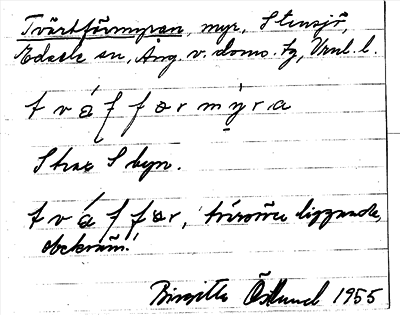 Tvärtförmyran, myr, Stensjö,
Edsele sn, Ång. v. doms. tg, Vnl. l.
t v á f f ə r m ý r a
Strax S byn.
t v á f f ə r, tväröver liggande,
obekväm!
Birgitta Östlund 1955